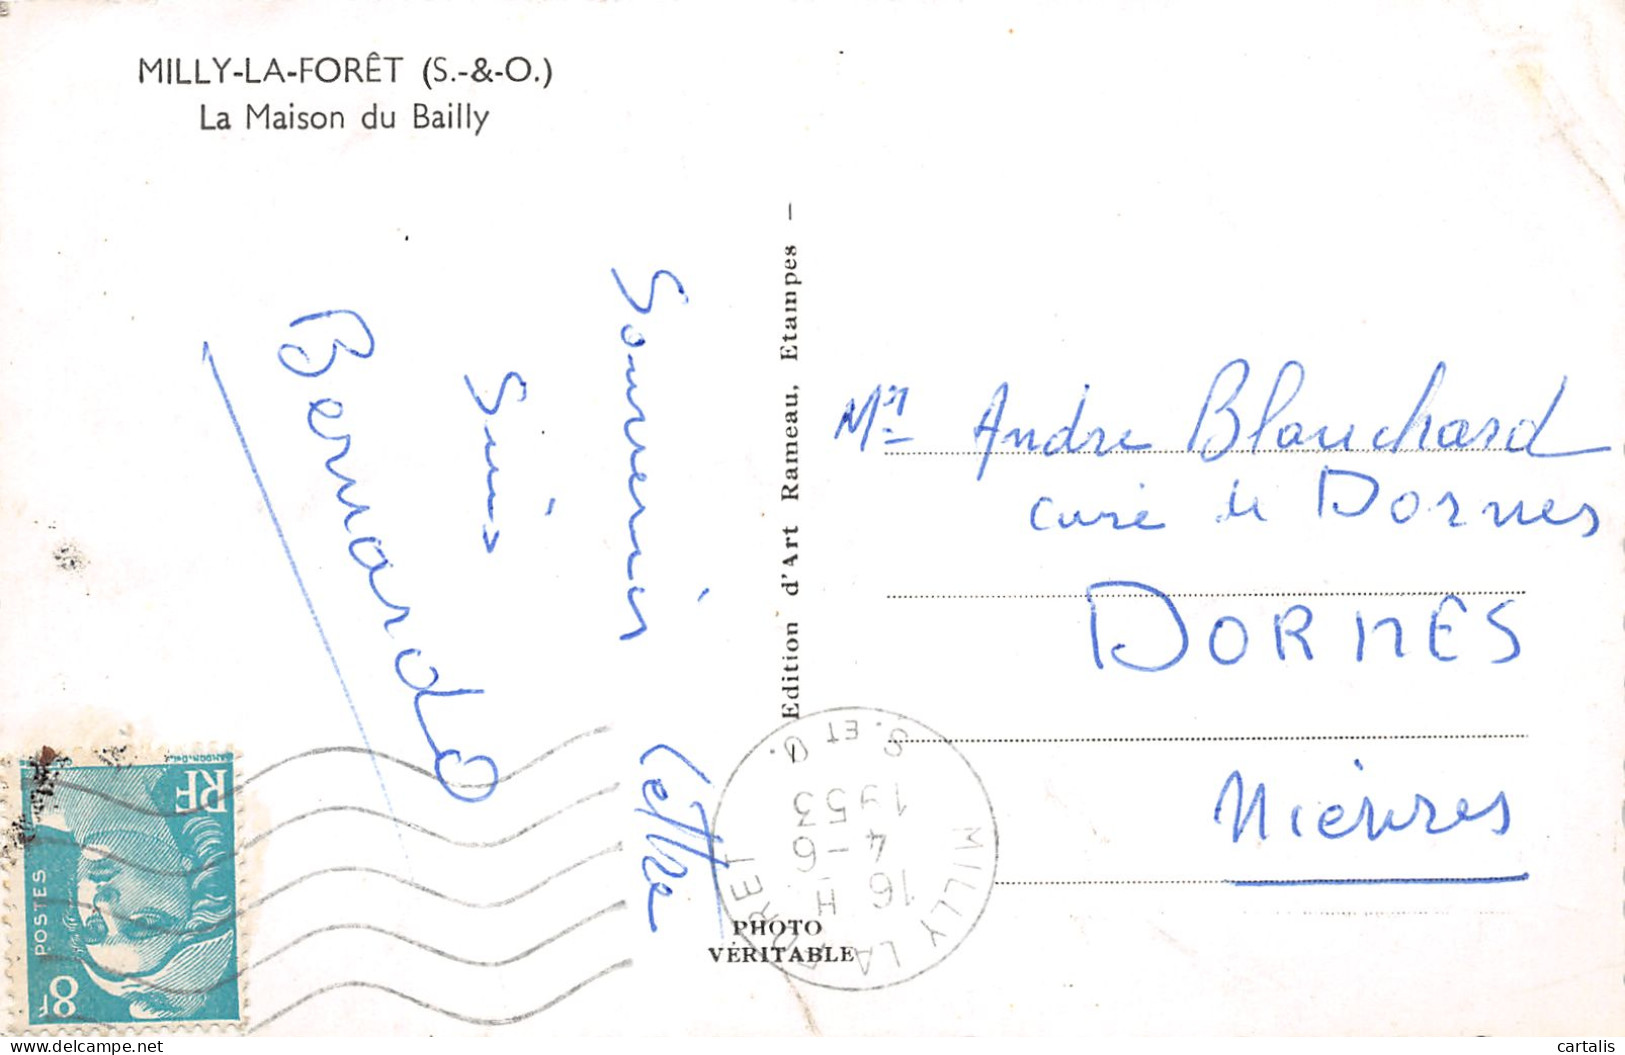 MILLY-LA-FORÊT (S.-&-O.)
La Maison du Bailly
Souvenirs
Suis
Bernard
Edition d'Art Rameau, Etampes -
Mr Andre Blanchard
curé de Dornes
DORNES
Nièvres
S. ET O.
MILLY LA FORET
16 H
4-6
1953
PHOTO
VÉRITABLE
RF
POSTES
8F
delcampe.net
cartalis